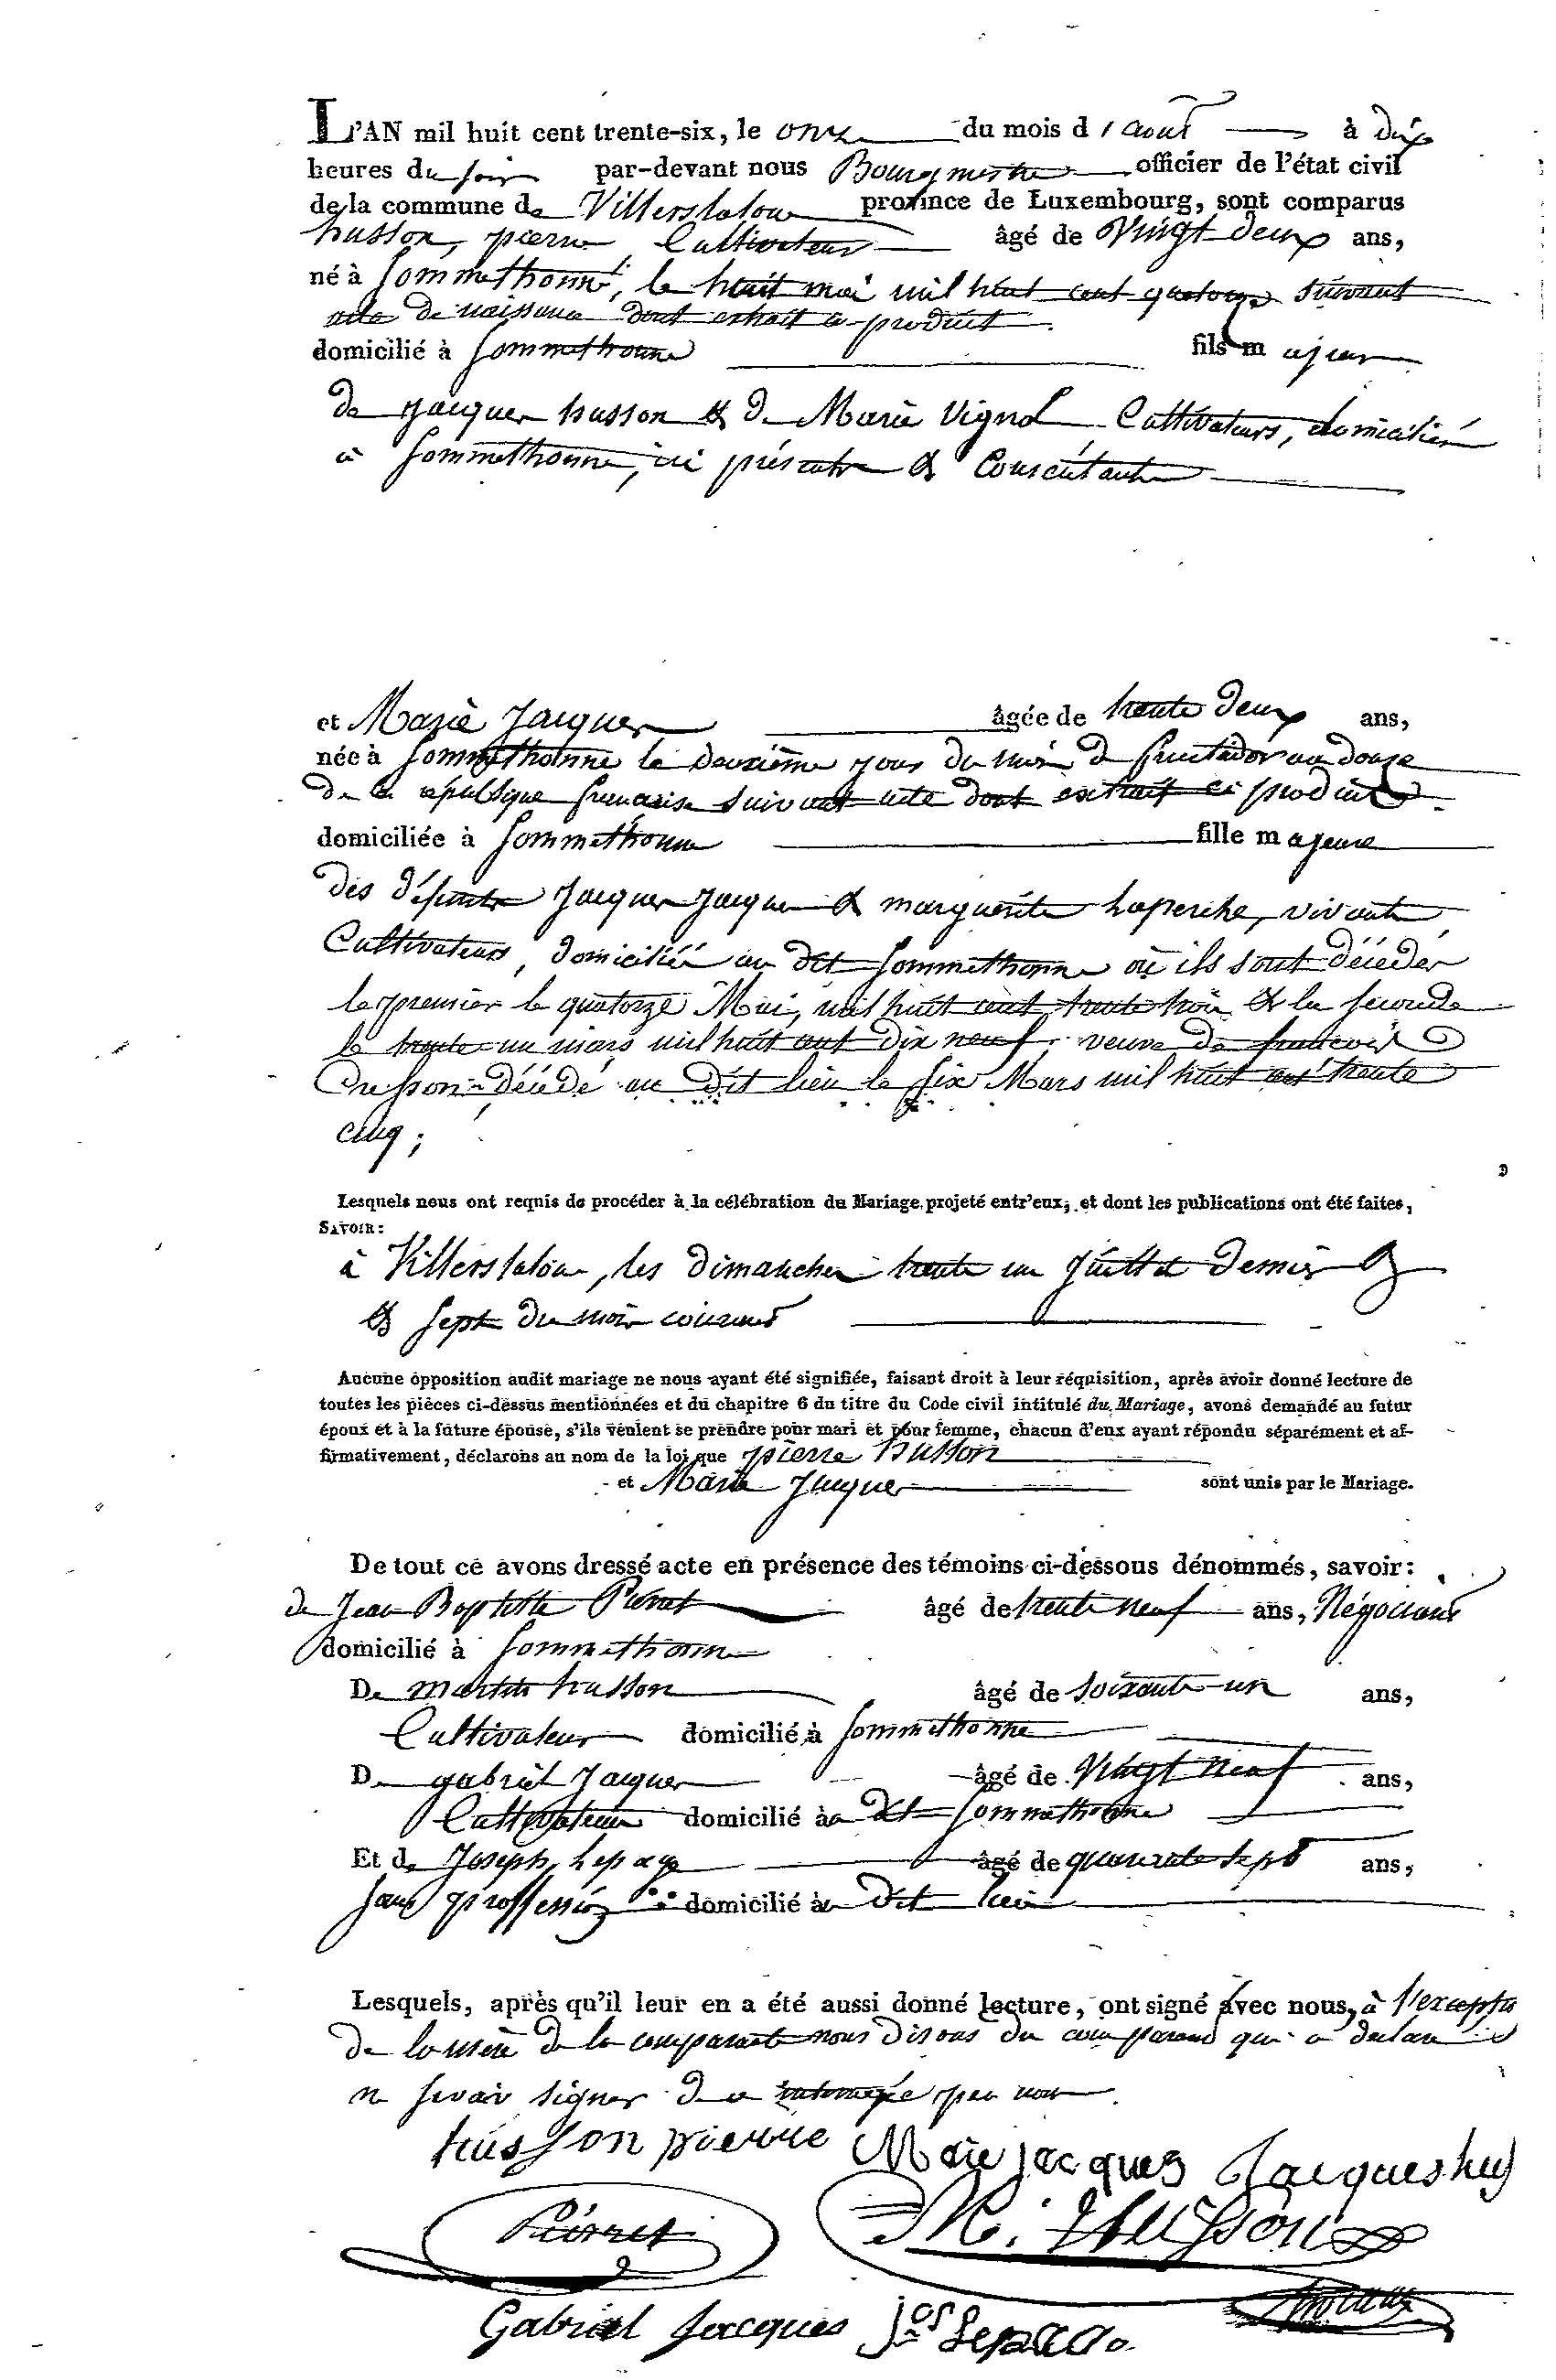 L'AN mil huit cent trente-six, le onze du mois d'août à dix
heures du soir par-devant nous Bourgmestre officier de l'état civil
de la commune de Villerslaloue province de Luxembourg, sont comparus
husson, pierre Cultivateur âgé de Vingt deux ans,
né à Sommethonne, le huit mai mil huit cent quatorze suivant
acte de naissance dont extrait ci-produit
domicilié à Sommethonne fils majeur
de jacques husson & de Marie Vignol Cultivateurs, domiciliés
à Sommethonne, ici présents & Consentants
et Marie Jacques âgée de trente deux ans,
née à Sommethonne le deuxième jour du mois de fructidor an douze
de la republique française suivant acte dont extrait ci produit
domiciliée à Sommethonne fille majeure
des défunts Jacques Jacques & marguerite Laperche, vivants
Cultivateurs, domiciliés au dit Sommethonne où ils sont décédés
le premier le quatorze Mai, mil huit cent trente trois & la seconde
le trente un mars mil huit cent dix neuf, veuve de francois
Cresson décédé au dit lieu le six Mars mil huit cent trente
cinq;
Lesquels nous ont requis de procéder à la célébration du Mariage projeté entr'eux, et dont les publications ont été faites,
SAVOIR:
à Villerslaloue, les dimanches trente un Juillet dernier
& sept du mois courant
Aucune opposition audit mariage ne nous ayant été signifiée, faisant droit à leur réquisition, après avoir donné lecture de
toutes les pièces ci-dessus mentionnées et du chapitre 6 du titre du Code civil intitulé du Mariage, avons demandé au futur
époux et à la future épouse, s'ils veulent se prendre pour mari et pour femme, chacun d'eux ayant répondu séparément et af-
firmativement, déclarons au nom de la loi que pierre husson
et Marie Jacques sont unis par le Mariage.
De tout ce avons dressé acte en présence des témoins ci-dessous dénommés, savoir:
de Jean Baptiste Pierret âgé de trente neuf ans, Négociant
domicilié à Sommethonne
De martin husson âgé de soixante-un ans,
Cultivateur domicilié à Sommethonne
De gabriel Jacques âgé de Vingt neuf ans,
Cultivateur domicilié au dit Sommethonne
Et de Joseph Lepage âgé de quarante sept ans,
sans proffession domicilié au dit lieu
Lesquels, après qu'il leur en a été aussi donné lecture, ont signé avec nous, à l'exception
de la mère de la comparante nous disons du comparant qui a déclaré
ne savoir signer de ce par nous
husson pierre Marie jacques Jacques hus
Pierret M. Husson
Gabriel Jacques Jos Lepage